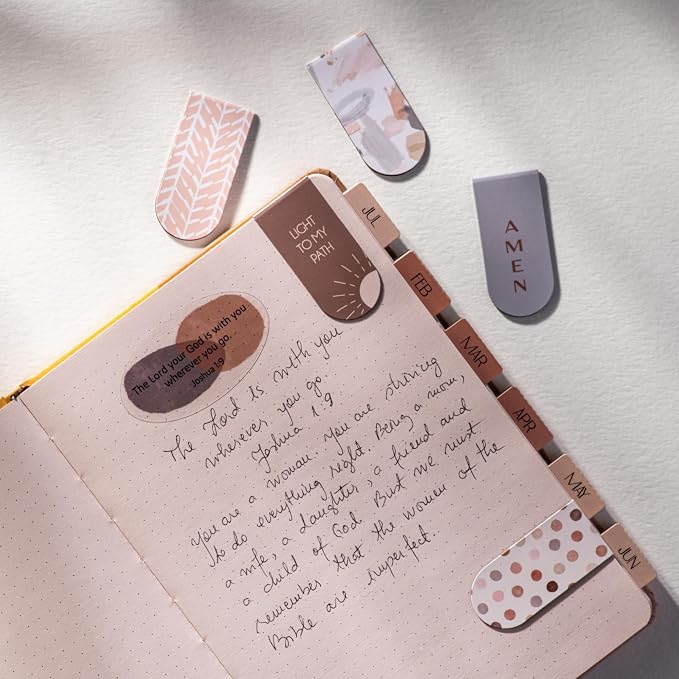 LIGHT
TO MY
PATH
AMEN
JUL
FEB
MAR
APR
MAY
JUN
The Lord your God is with you
wherever you go...
Joshua 1:9
The Lord Is with you
wherever you go.
Joshua 1:9
You are a woman. You are striving
to do everything right. Being a mom,
a wife, a daughter, a friend and
a child of God. But we must
remember that the women of the
Bible are imperfect..